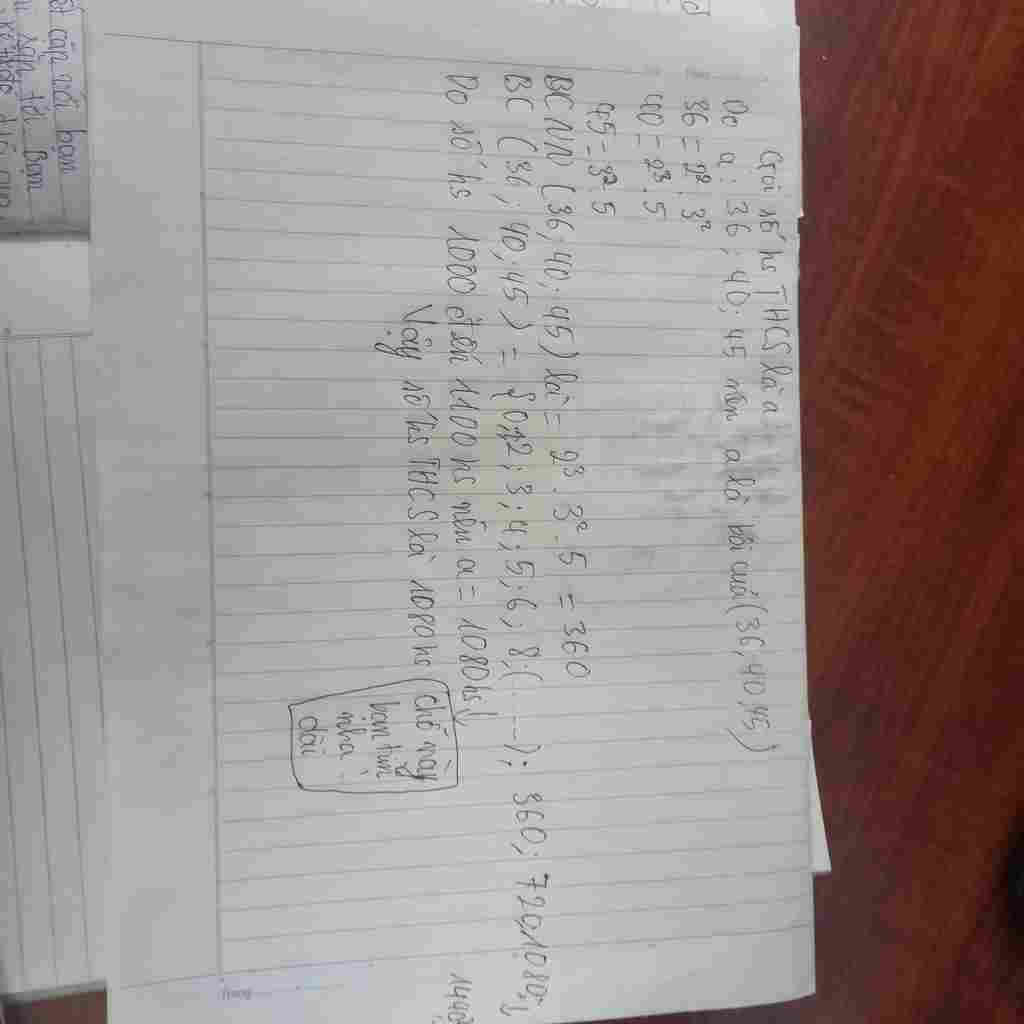 Gọi số hs THCS là a
Do a : 36 ; 40 ; 45 nên a là bội của (36, 40, 45)
36 = 2² . 3²
40 = 2³ . 5
45 = 3² . 5
BCNN (36, 40, 45) là = 2³ . 3² . 5 = 360
BC (36, 40, 45) = {0,1,2 ; 3 ; 4 ; 5 ; 6 ; 8 ; (....) ; 360 ; 720, 1080 ;
1440
Do số hs 1000 đến 1100 hs nên a = 1080 hs
Vậy số hs THCS là 1080 hs
chỗ này
bạn tìm
nha
dài
cặp nối bạn
tới bạn